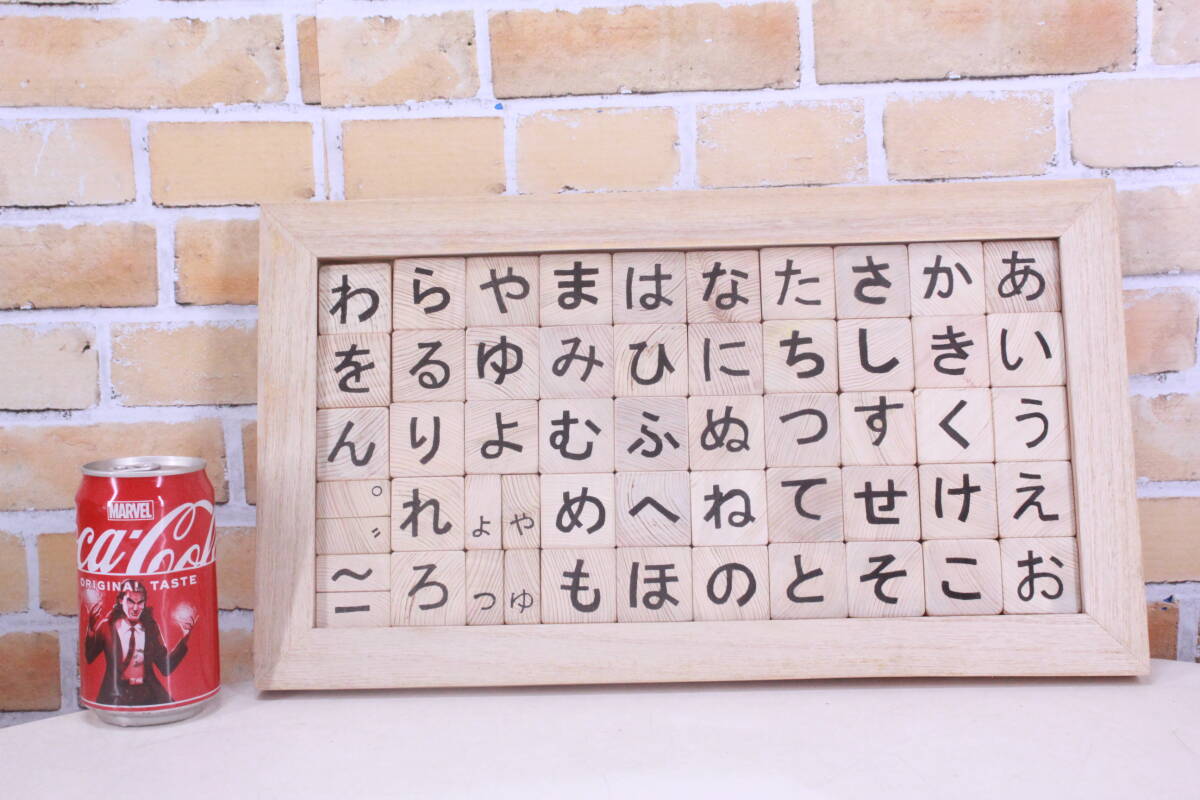 あいうえお
かきくけこ
さしすせそ
たちつてと
なにぬねの
はひふへほ
まみむめも
やゆよゃょゅっ
らるりれろ
わをん゜゛〜ー
MARVEL
ca-Col
ORIGINAL TASTE